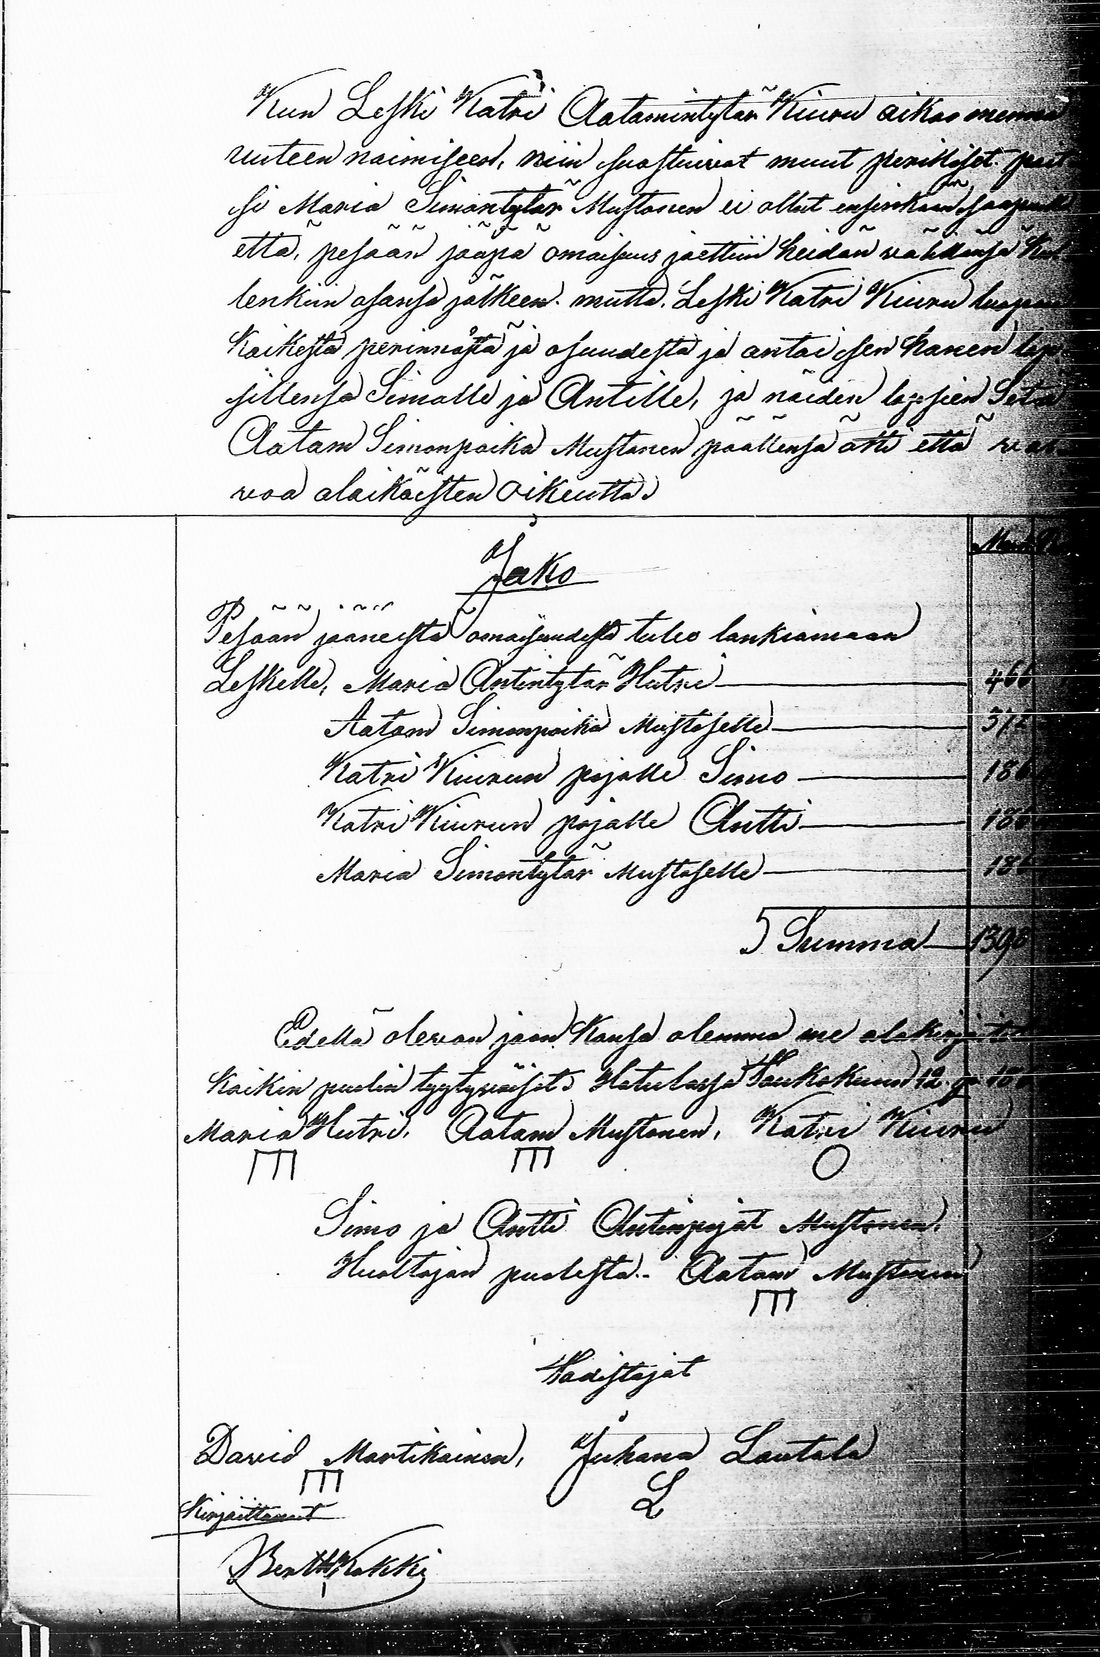 Kun Leski Katri Aatamintytär Kiuru aikoo mennä
uuteen naimiseen, niin suostuivat muut perilliset, pait
si Maria Simontytär Mustonen ei ollut ensinkään saapuvilla
että, pesään jääpä omaisuus jaettiin heidän välillänsä kul
lenkiin osansa jälkeen. mutta. Leski Katri Kiuru luopuu
kaikesta perinnöstä ja osuudesta ja antoi sen hänen lap
sillensa Simolle ja Antille, ja näiden lapsien Setä
Aatam Simonpoika Mustonen päällensä otti että val
voa alaikäisten oikeutta
Jako
Pesään jääneestä omaisuudesta tulee lankiamaan
Leskelle, Maria Antintytär Hutri 466
Aatam Simonpoika Mustoselle
Katri Kiurun pojalle Simo 186
Katri Kiurun pojalle Antti 186
Maria Simontytär Mustoselle 186
Summa 1398
Edellä olevan jaon kansa olemma me alakirjoit
kaikin puolin tyytyväiset. Hatulassa Toukokuun 12. p.
Maria Hutri, Aatam Mustonen, Katri Kiuru
Simo ja Antti Antinpojat Mustonen.
Huoltajan puolesta. Aatam Mustonen
Todistajat
David Martikainen, Juhana Lautala
L
Kirjoittanut
Berth Kokki